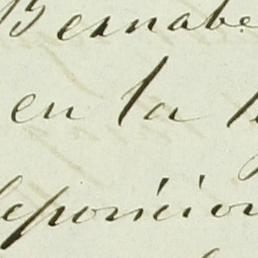 Bernabe
en la
deposicion